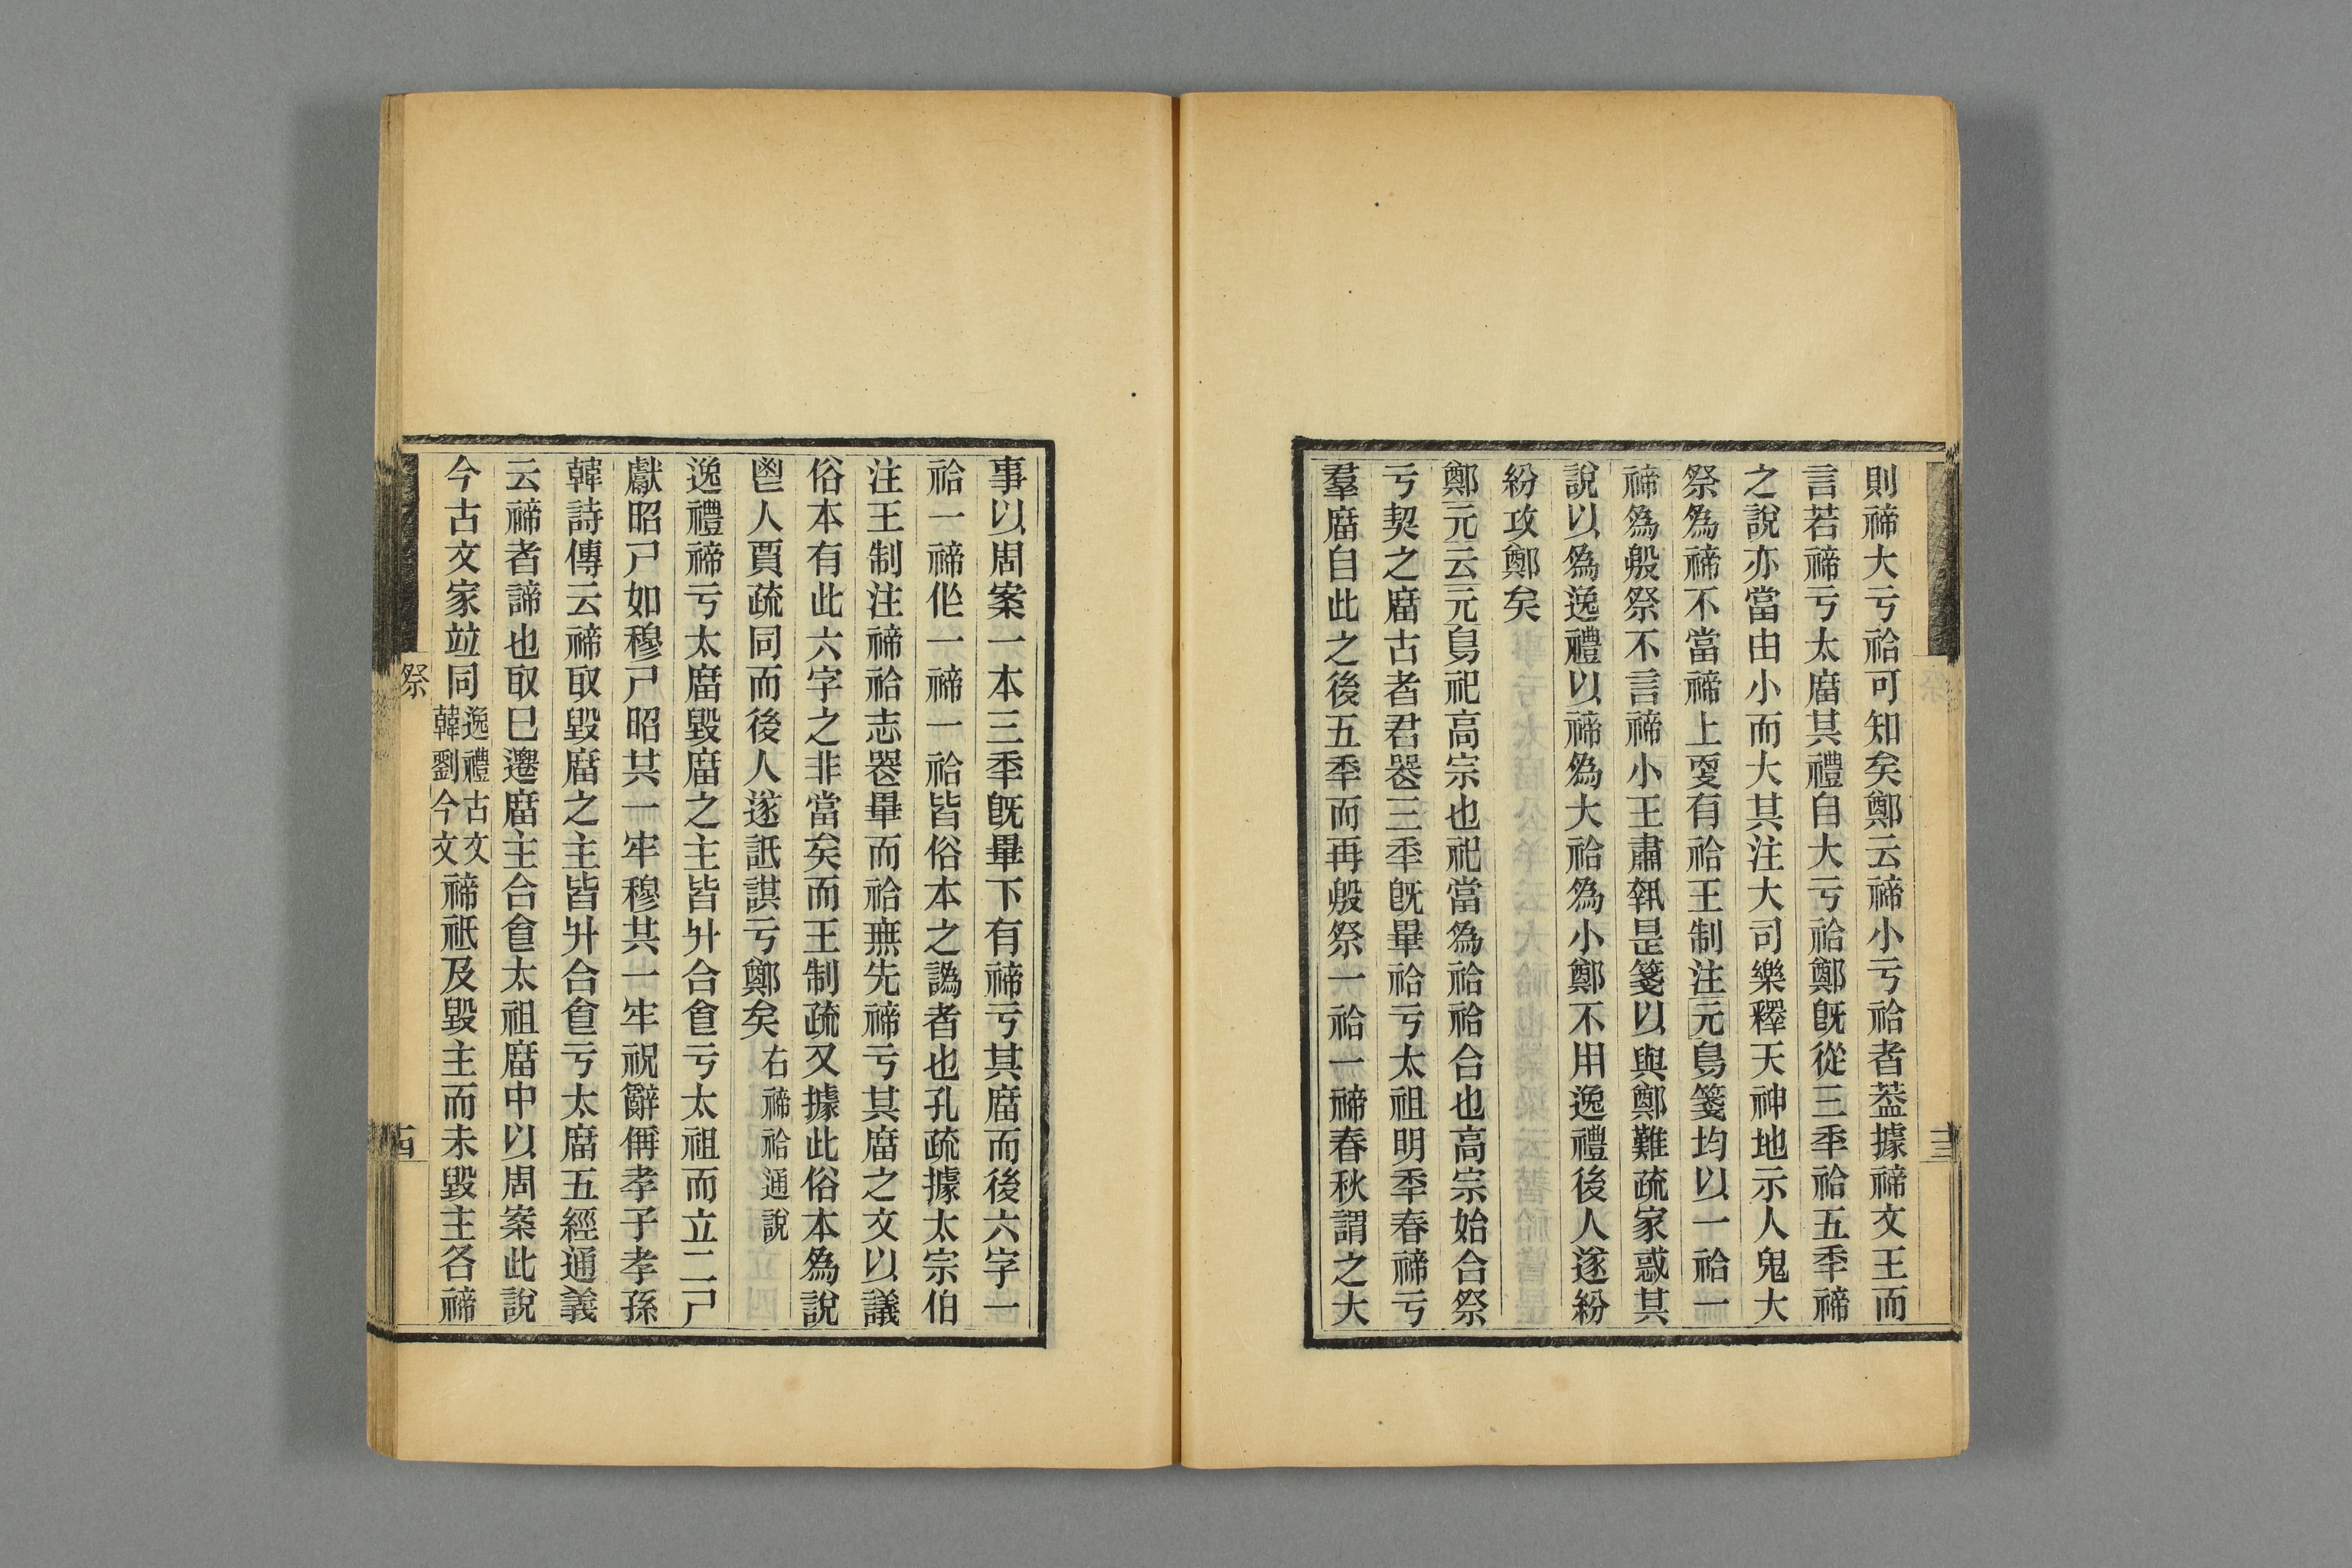 則禘大亏祫可知矣鄭云禘小亏祫者葢據禘文王而
言若禘亏太庿其禮自大亏祫鄭旣從三秊祫五秊禘
之說亦當由小而大其注大司樂釋天神地示人鬼大
祭爲禘不當禘上㪅有祫王制注元鳥箋均以一祫一
禘爲殷祭不言禘小王肅執是箋以與鄭難疏家惑其
說以爲逸禮以禘爲大祫爲小鄭不用逸禮後人遂紛
紛攻鄭矣
鄭元云元鳥祀高宗也祀當爲祫祫合也高宗始合祭
亏契之庿古者君喪三秊旣畢祫亏太祖明秊春禘亏
羣庿自此之後五秊而再殷祭一祫一禘春秋謂之大
事以周案一本三秊旣畢下有禘亏其庿而後六字一
祫一禘作一禘一祫皆俗本之譌者也孔疏據太宗伯
注王制注禘祫志喪畢而祫無先禘亏其庿之文以議
俗本有此六字之非當矣而王制疏又據此俗本爲說
鬯人賈疏同而後人遂詆諆亏鄭矣 右禘祫通說
逸禮禘亏太庿毀庿之主皆升合食亏太祖而立二尸
獻昭尸如穆尸昭共一牢穆共一牢祝辭偁孝子孝孫
韓詩傳云禘取毀庿之主皆升合食亏太庿五經通義
云禘者諦也取已遷庿主合食太祖庿中以周案此說
今古文家竝同逸禮古文韓劉今文禘祇及毀主而未毀主各禘
祭